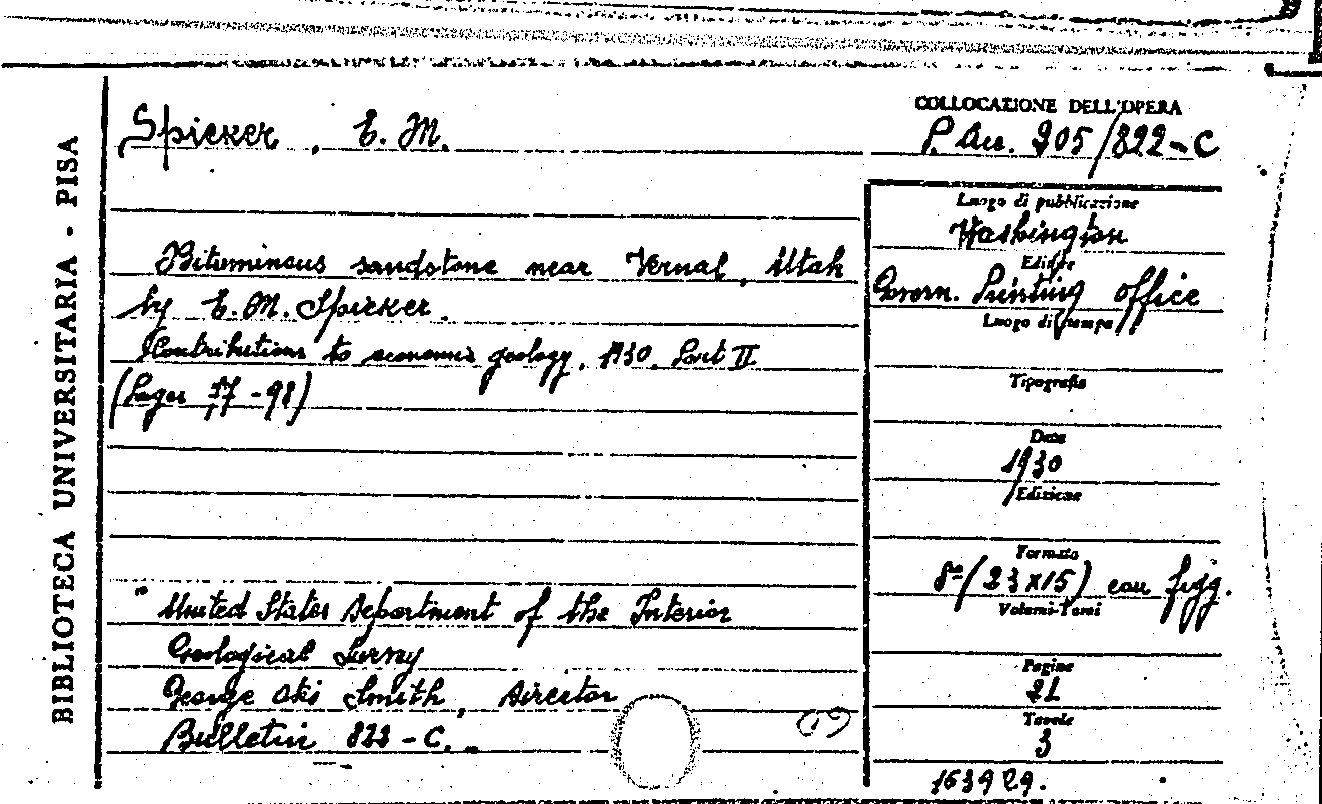 BIBLIOTECA UNIVERSITARIA - PISA
Spieker, E. M.
COLLOCAZIONE DELL'OPERA
P. Au. 905/822-C
Bituminous sandstone near Vernal, Utah
by E. M. Spieker.
Contributions to economic geology, 1930, Part II
(Pages 77-98)
"United States Department of the Interior
Geological Survey
George Otis Smith, Director
Bulletin 822-C.„
Luogo di pubblicazione
Washington
Editore
Govern. Printing office
Luogo di stampa
Tipografia
Data
1930
Edizione
Formato
8º (23x15) con figg.
Volumi-Tomi
Pagine
21
Tavole
3
163929.